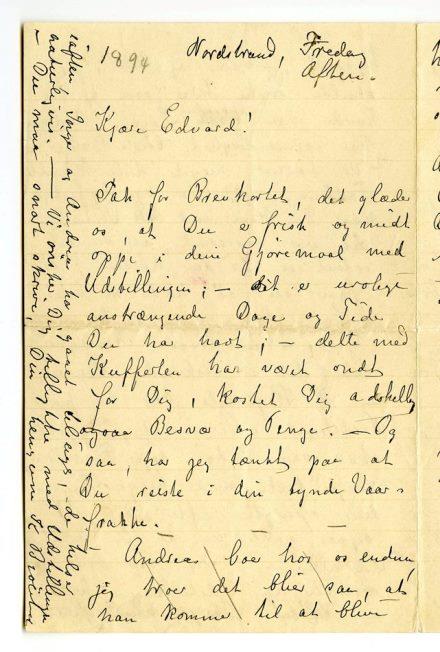 1894
Nordstrand, Fredag
Aften.
Kjære Edvard!
Tak for Brevkortet, det glæde
os, at Du er frisk og midt
oppe i dine Gjøremaal med
Udstillingen; – det er urolige
anstrængende Dage og Tide
Du ha havt; – dette med
Kufferten har været ondt
for Dig, kostet Dig adskillig
ogsaa Besvær og Penge. – Og
saa, har jeg tænkt paa at
Du reiste i din tynde Vaar-
frakke. –
Andreas boer hos os endnu,
jeg troer det blier saa, at
han kommer til at blive
iaften. Inger og Andreas ha gaaet tilsengs, – de hilser
naturligvis. – Vi ønske Dig tillykke med Udstillingen
– Du maa snart skrive, Din hengivne K Bjølstad